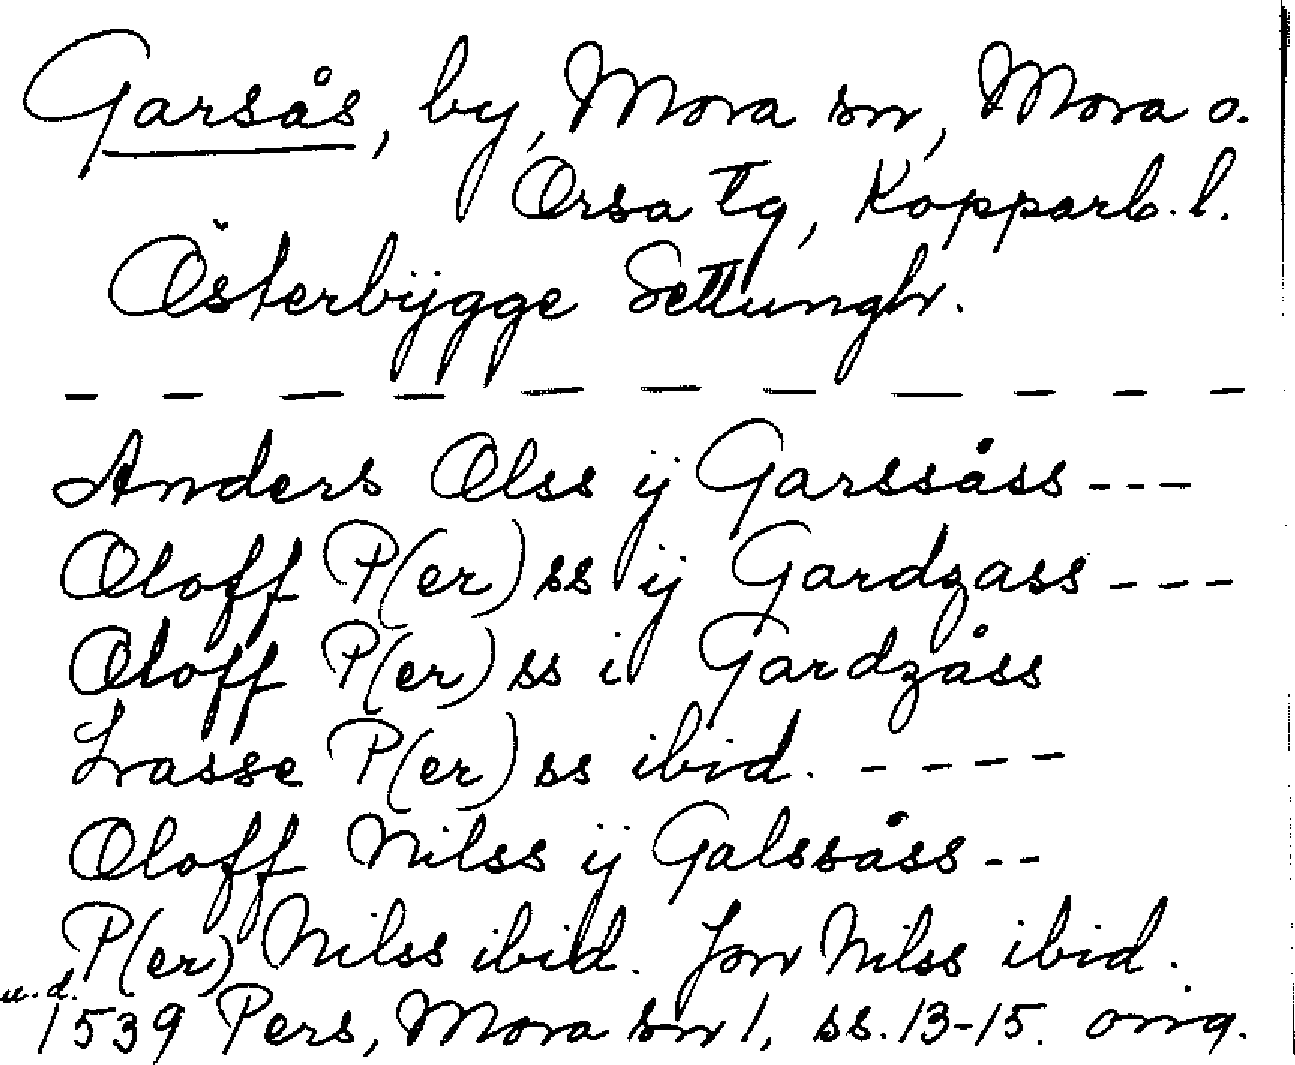 Garsås, by, Mora sn, Mora o.
Orsa tg, Kopparb. l.
Österbÿgge Settungh.
— — — — — — — — — — —
Anders Olss ÿ Garssåss ---
Oloff P(er)ss ÿ Gardzass ---
Oloff P(er)ss i Gardzåss
Lasse P(er)ss ibid. ----
Oloff Nilss ÿ Galssåss --
P(er) Nilss ibid. Jon Nilss ibid.
u.d.
1539 Pers, Mora sn 1, ss. 13-15. orig.